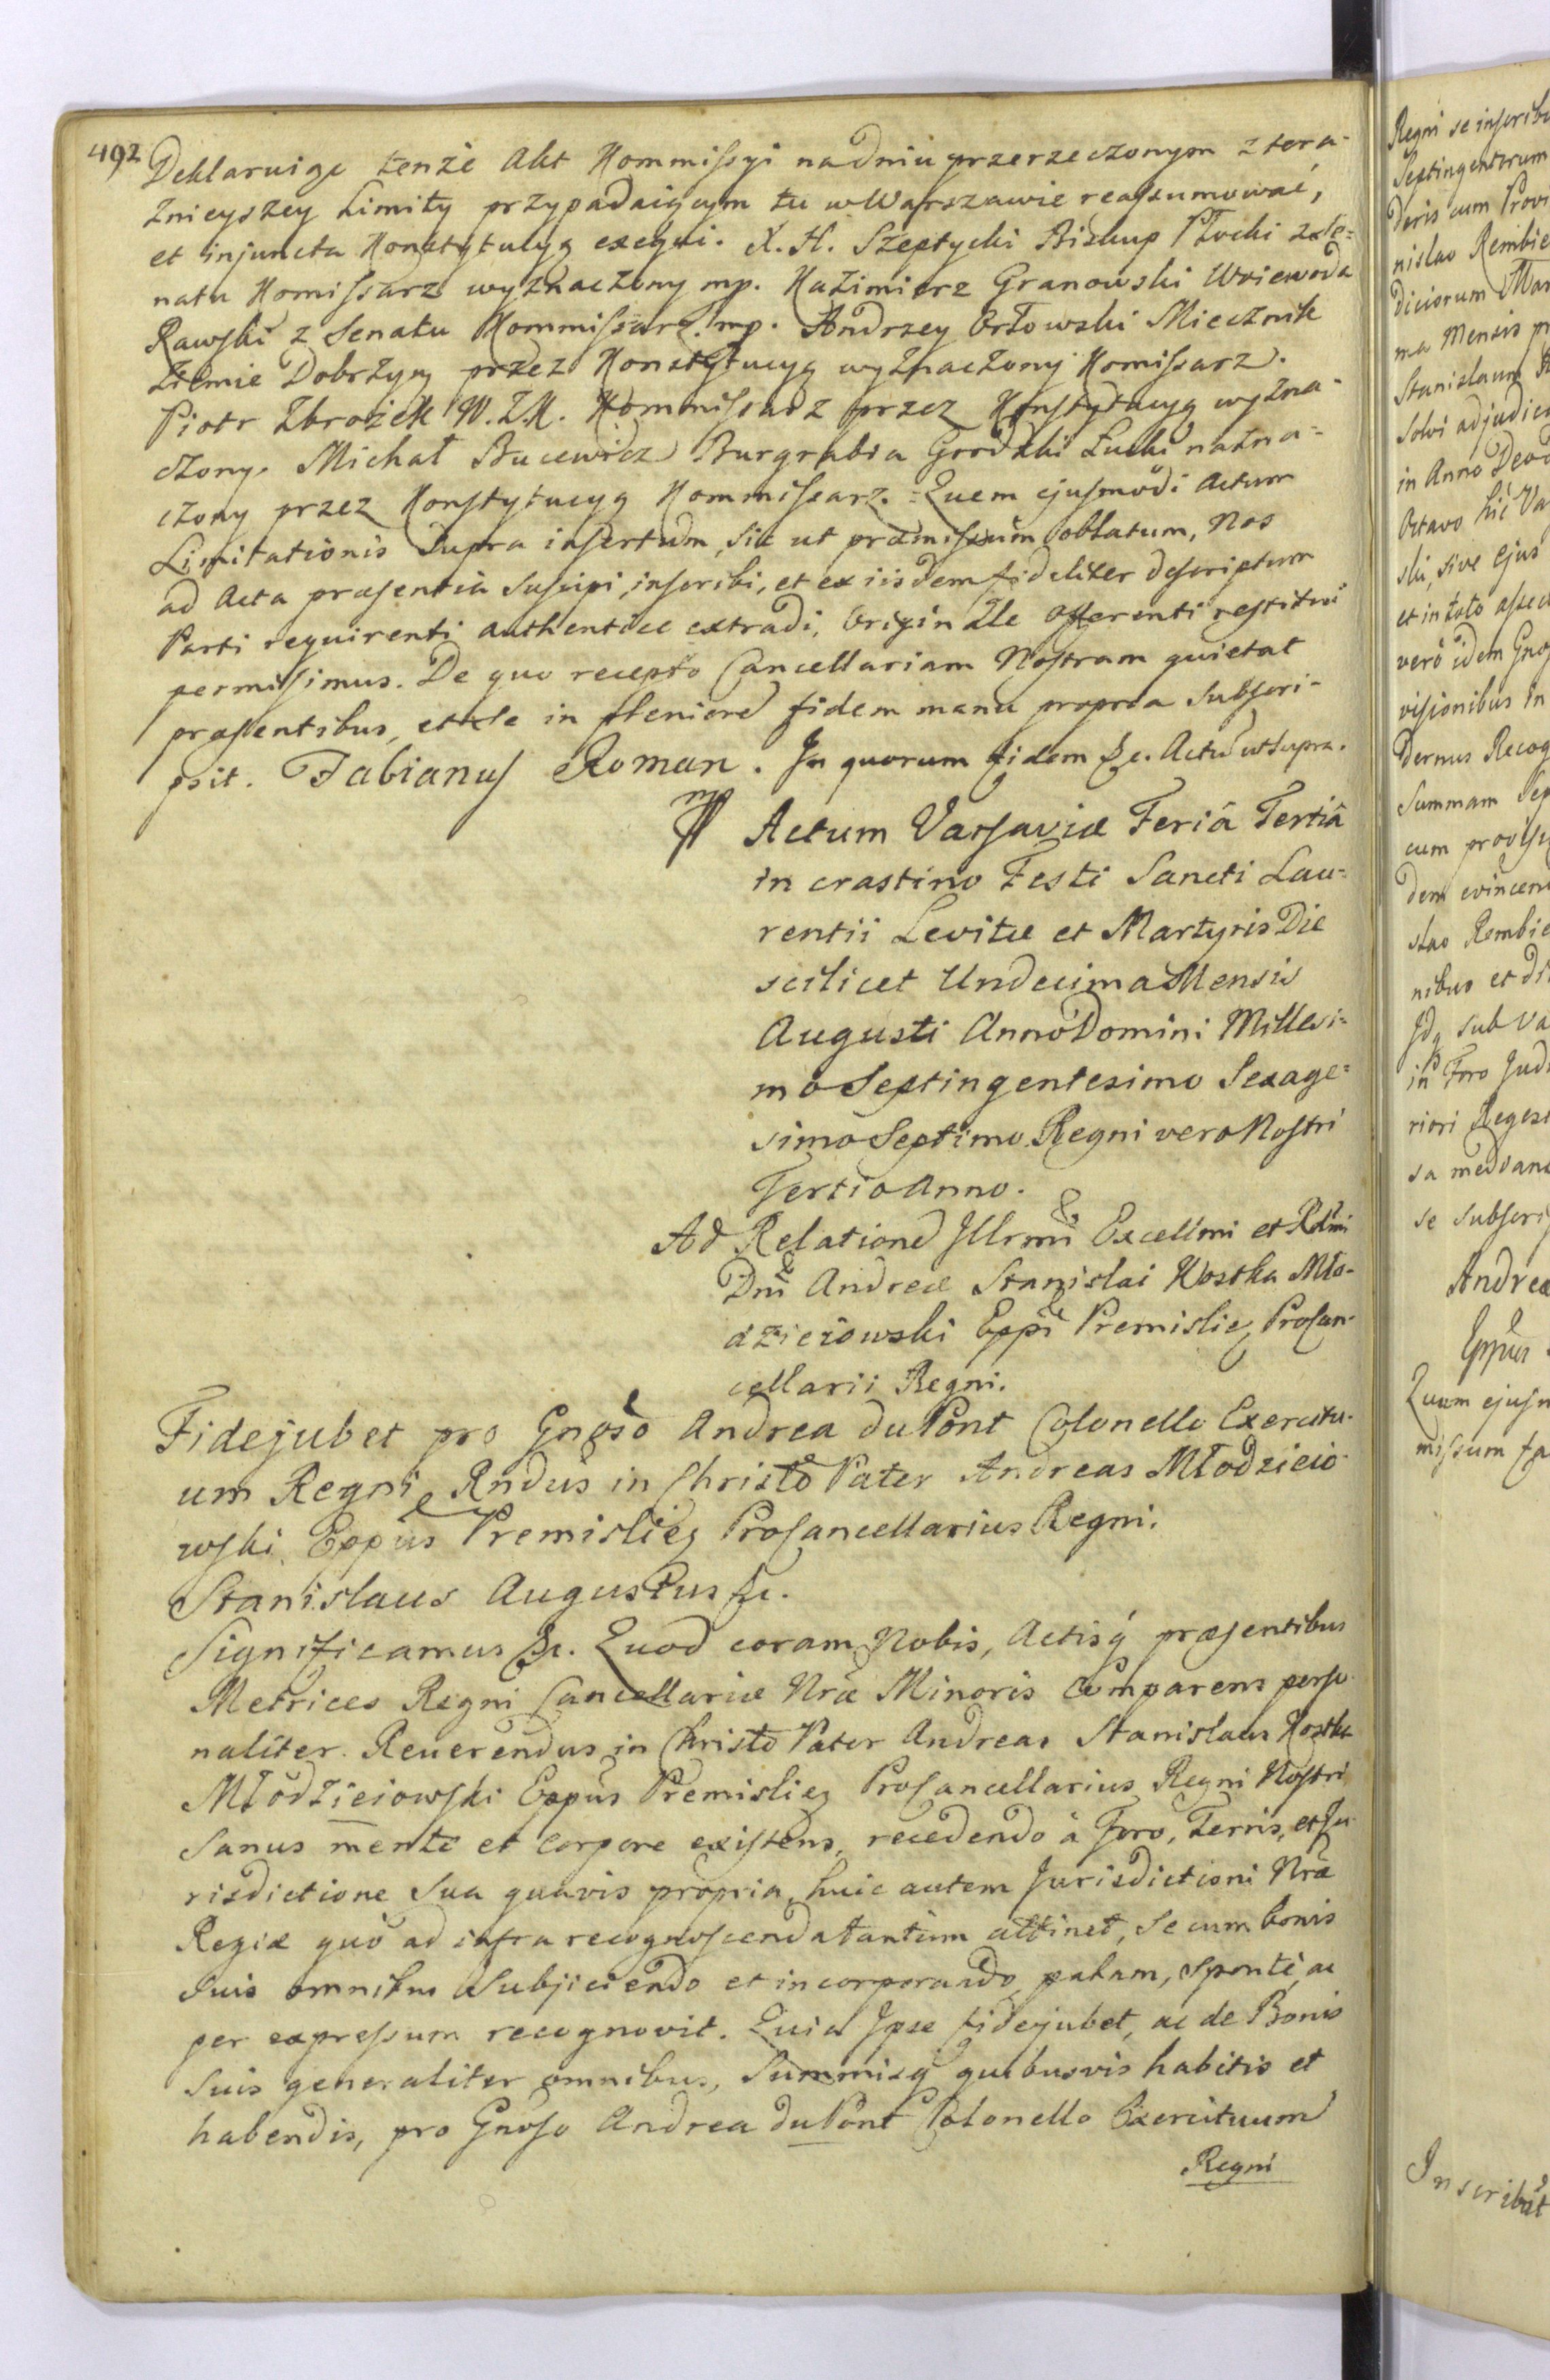 492
Deklaruiąc tenże Akt Kommissyi na dniu przerzeczonym z tera-
znieyszey Limity przypadaiącym tu w Warszawie reassumować,
et injuncta Konstytucyą exequi. X. H. Szeptycki Biskup Płocki z Se=
natu Komissarz wyznaczony mp. Kazimierz Granowski Woiewoda
Rawski z Senatu Kommissarz mp. Andrzey Orłowski Miecznik
Ziemie Dobrzyń przez Konstytucyą wyznaczony Komissarz.
Piotr Zbrożek W. Z. K. Kommissarz przez Konstytucyą wyzna-
czony. Michał Bucewicz Burgrabia Grodzki Łucki nazna=
czony przez Konstytucyą Kommissarz. = Quem ejusmodi Actum
Limitationis supra insertum, sic ut præmissum oblatum, Nos
ad Acta præsentia suscipi, inscribi, et ex iisdem fideliter descriptum
Parti requirenti authentice extradi, Originale Offerenti restitui
permisimus. De quo recepto Cancellariam Nostram quietat
præsentibus, et se in pleniorem fidem manu propria subscri-
psit. Fabianus Roman. In quorum fidem &c. Actum ut supra.
mp
Actum Varsaviæ Feriâ Tertiâ
in crastino Festi Sancti Lau=
rentii Levitæ et Martyris Die
scilicet Undecima Mensis
Augusti Anno Domini Millesi=
mo Septingentesimo Sexage=
simo Septimo. Regni vero Nostri
Tertio Anno.
Ad Relationem Illrmi Excellmi et Rdmi
Dni Andreæ Stanislai Kostka Mło-
dzieiowski Eppi Premislien Procan-
cellarii Regni.
Fidejubet pro Gnoso Andrea du Pont Colonello Exercitu-
um Regni, Rndus in Christo Pater Andreas Młodzieio-
wski Eppus Premislien Procancellarius Regni.
Stanislaus Augustus &c.
Significamus &c. Quod coram Nobis, Actisq præsentibus
Metrices Regni Cancellariæ Nræ Minoris Comparens perso-
naliter Reuerendus in Christo Pater Andreas Stanislaus Kostka
Młodzieiowski Eppus Premislien Procancellarius Regni Nostri
sanus mente et corpore existens, recedendo à Foro, Terris, et Ju-
risdictione sua quavis propria, huic autem Jurisdictioni Nræ
Regiæ quò ad infra recognoscenda tantùm attinet, se cum bonis
suis omnibus subjiciendo et incorporando, palam, sponte, ac
per expressum recognovit. Quia Ipse fidejubet, ac de Bonis
suis generaliter omnibus, Summisq quibusvis habitis et
habendis, pro Gnoso Andrea du Pont Colonello Exercituum
Regni
Regni se inscribe
Septingentorum
deris cum Provi
nislao Rembie
diciorum Mar
ma Mensis pr
Stanislaum
solvi adjudica
in Anno
Octavo hic Va
ski, sive ejus
et in toto assec
verò idem Gnos
visionibus in
dernus Recog
Summam Sep
cum provisi
dem evincen
slao Rembie
nibus et
Idq sub va
in Foro Judi
riori Regest
sa medvane
se subscri
Andrea
Eppus
Quam ejusm
missum fa
Inscribit